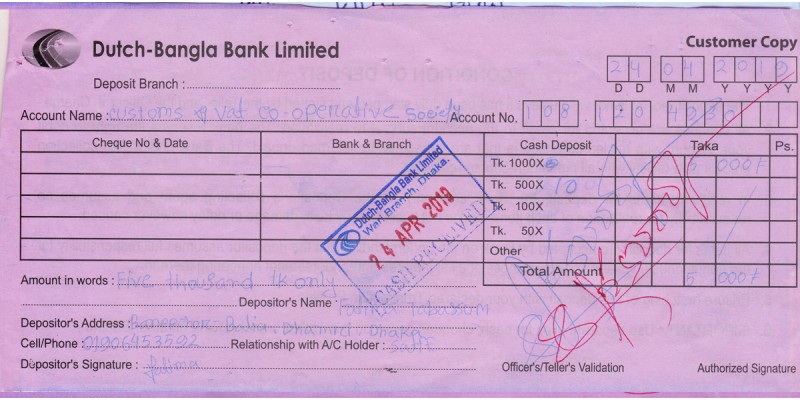 Dutch-Bangla Bank Limited
Customer Copy
24 04 2019
D D M M Y Y Y Y
Deposit Branch :
Account Name : customs & vat co-operative society Account No. 108 120 4230
Cheque No & Date Bank & Branch Cash Deposit Taka Ps.
Tk. 1000X
5 000/-
Tk. 500X 10
Tk. 100X
Tk. 50X
Other
Total Amount 5 000/-
Dutch-Bangla Bank Limited
Wari Branch, Dhaka.
24 APR 2019
CASH RECEIVED
Amount in words : Five thousand tk only
Depositor's Name : Fatima Tabassum
Depositor's Address : Dhamrai Dhaka
Cell/Phone : 01906453592 Relationship with A/C Holder : self
Depositor's Signature : fatima
Officer's/Teller's Validation Authorized Signature